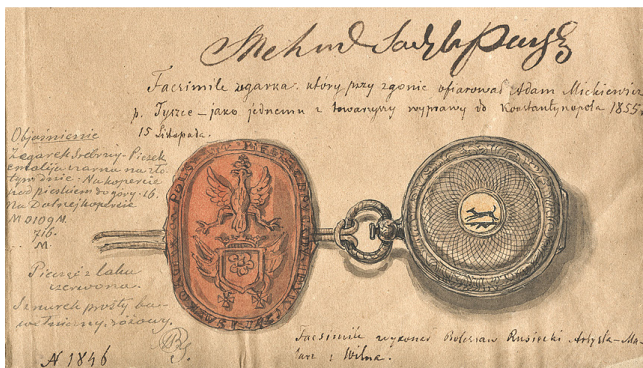 Mehmed Sadyk Pasza
Facsimile zegarka, który przy zgonie ofiarował Adam Mickiewicz
p. Tyszce – jako jednemu z towarzyszy wyprawy do Konstantynopola 1855.
15 Listopada.
Objaśnienie
Zegarek Srebrny. Piesek
emalija czarna na zło
tym dnie. Na kopercie
nad pieskiem u góry. 16.
Na Dolnej kopercie
N. 0109 N.
716.
M.
Pieczęć z laku
czerwona.
Sznurek prosty ba-
wełniany, różowy.
N 1846
Facsimile wykonał Bolesław Rusiecki Artysta-Ma-
larz z Wilna.